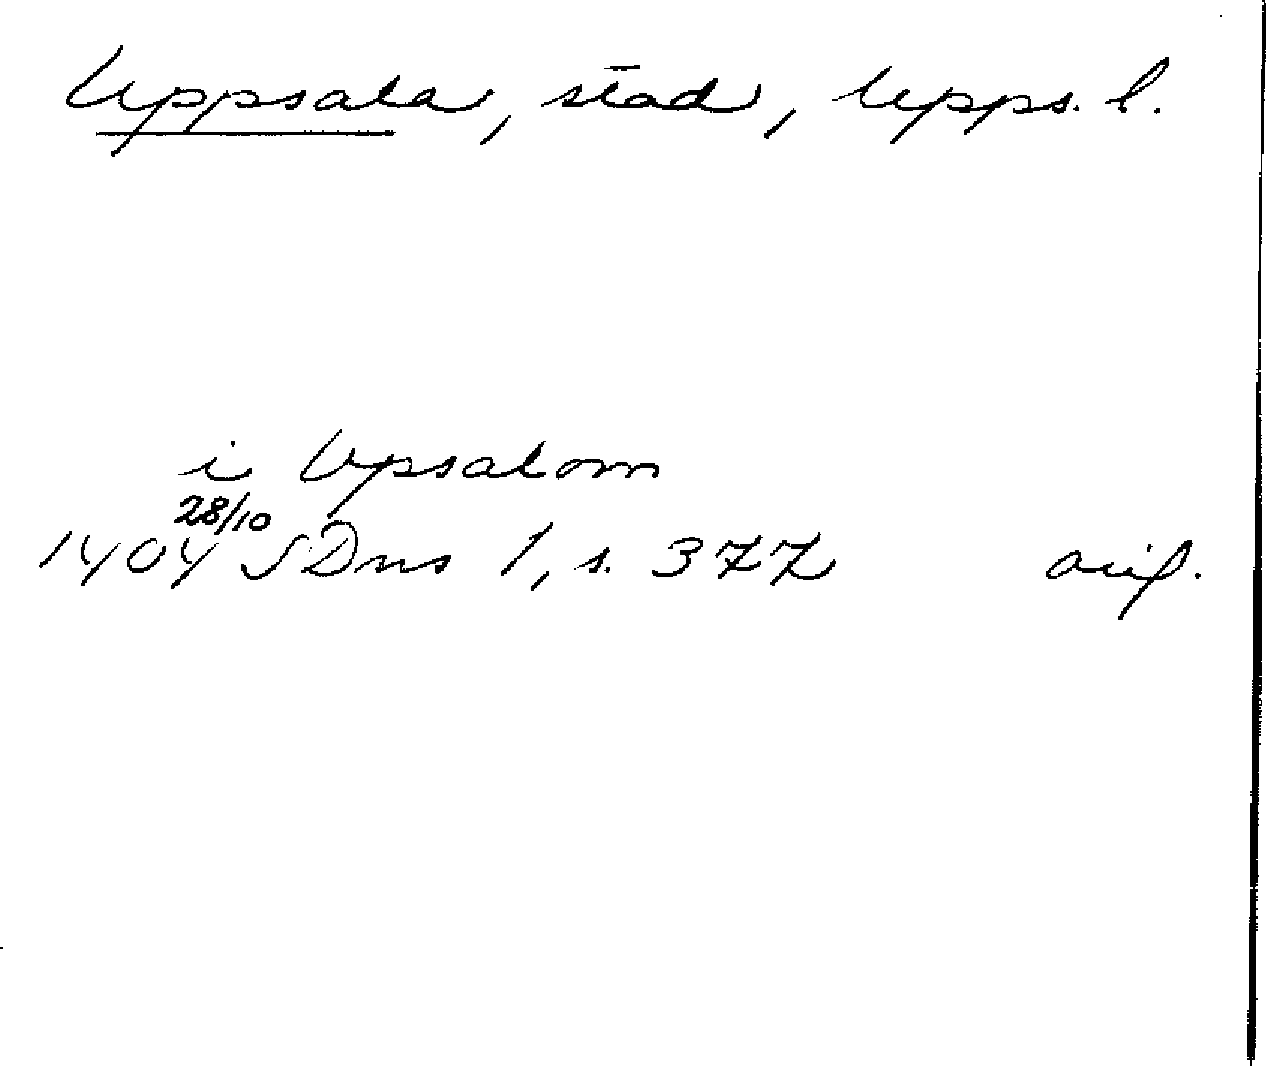 Uppsala, stad, Upps. l.
i Vpsalom
28/10
1404 SDns 1, s. 377 avf.